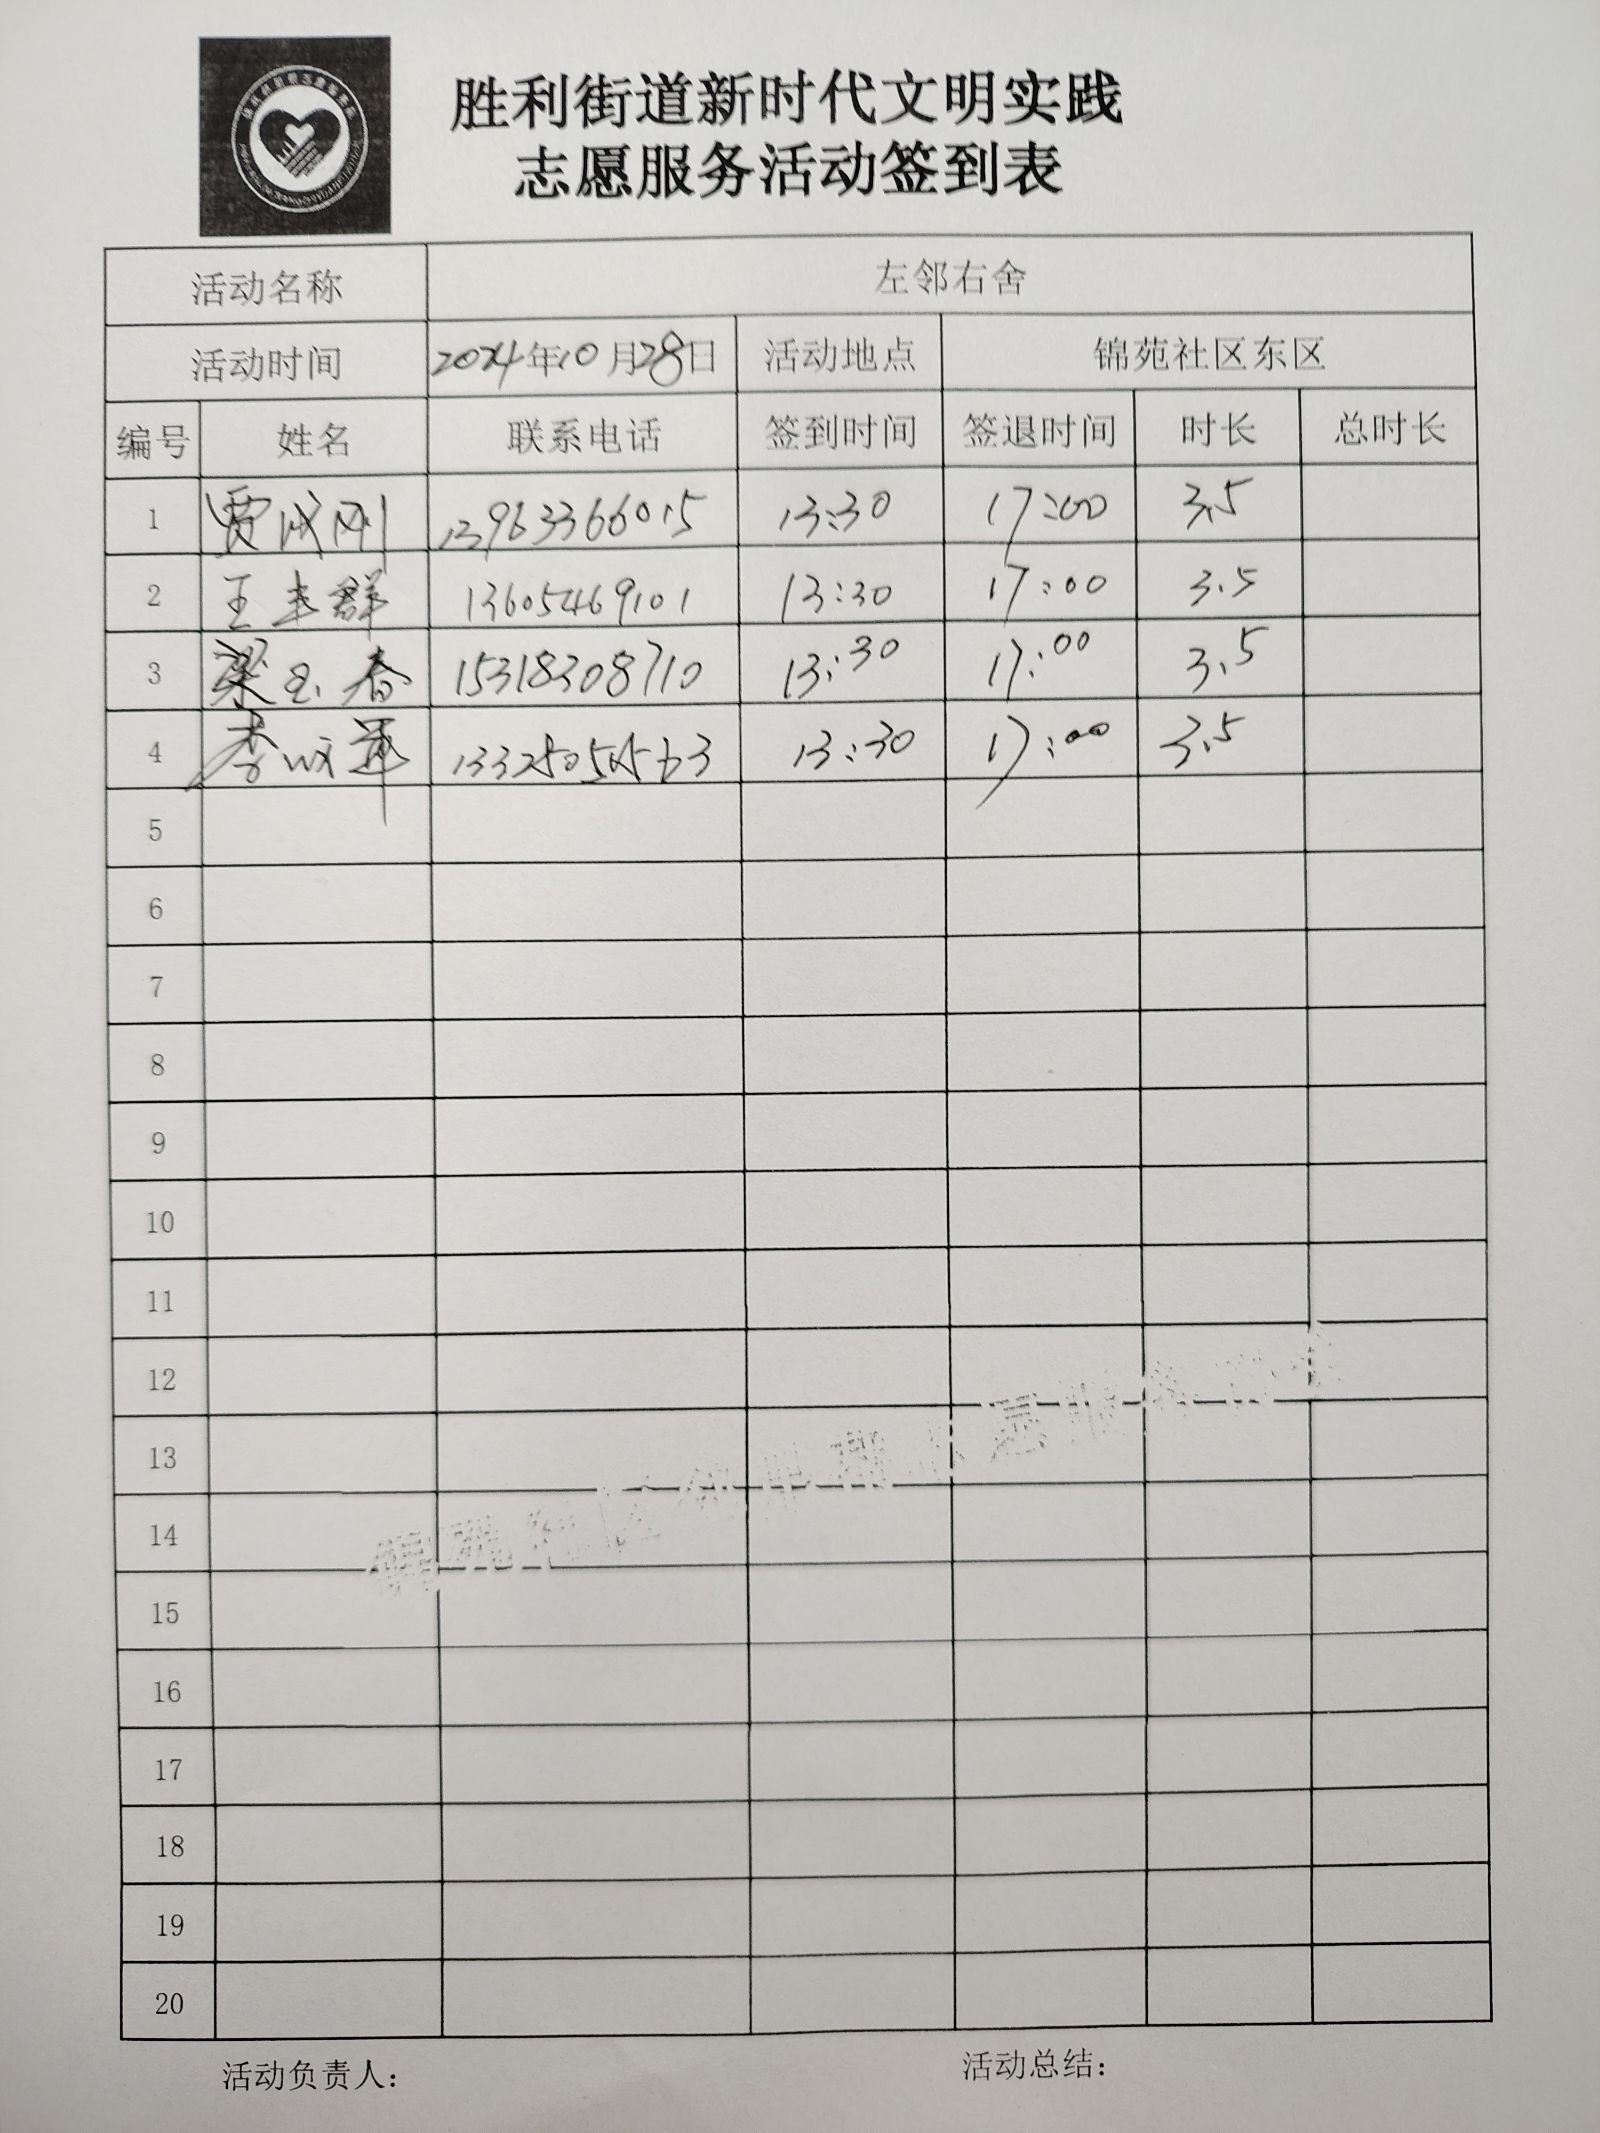 胜利街道新时代文明实践
志愿服务活动签到表
活动名称 左邻右舍
活动时间 2024年10月28日 活动地点 锦苑社区东区
编号 姓名 联系电话 签到时间 签退时间 时长 总时长
1 贾成刚 13963366015 13:30 17:00 3.5
2 王丰群 13605469101 13:30 17:00 3.5
3 梁玉春 15318308710 13:30 17:00 3.5
4 李成军 13:30 17:00 3.5
5
6
7
8
9
10
11
12
13
14
15
16
17
18
19
20
活动负责人： 活动总结：